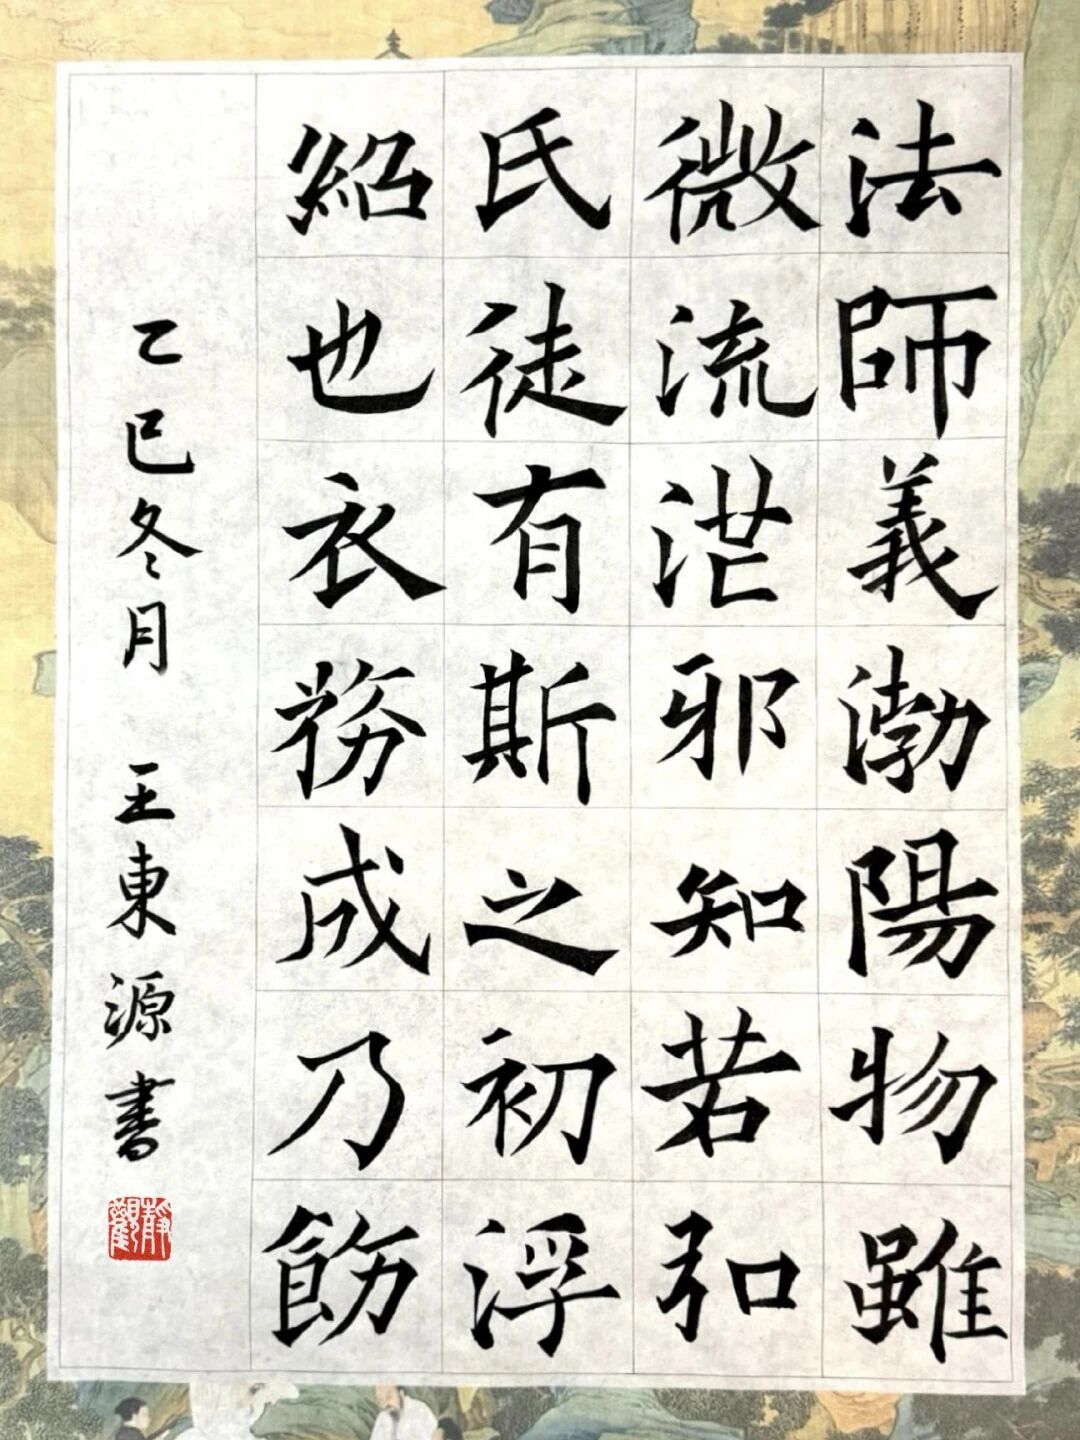 法師義渤陽物雖
微流泄邪知若弘
氏徒有斯之初浮
紹也衣務成乃飭
乙巳冬月 王東源書
靜觀